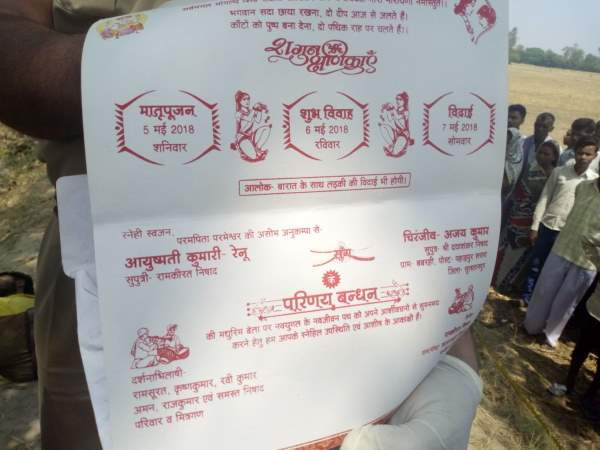 भगवान सदा छाया रखना, दो दीप आज से जलते हैं।
काँटो को पुष्प बना देना, दो पथिक राह पर चलते हैं।।
शगुन
मातृपूजन
5 मई 2018
शनिवार
शुभ विवाह
6 मई 2018
रविवार
विदाई
7 मई 2018
सोमवार
आलोक- बारात के साथ लड़की की विदाई भी होगी।
स्नेही स्वजन,
परमपिता परमेश्वर की असीम अनुकम्पा से-
आयुष्मती कुमारी- रेनू
सुपुत्री- रामकीरत निषाद
संग
चिरंजीव- अजय कुमार
सुपुत्र- श्री दयाशंकर निषाद
ग्राम- बबरही, पोस्ट-
जिला- सुलतानपुर
परिणय बन्धन
की मधुरिम बेला पर नवयुगल के नवजीवन पथ को अपने आशीर्वचनों से
करने हेतु हम आपके स्नेहिल उपस्थिति एवं आशीष के आकांक्षी हैं।
दर्शनाभिलाषी-
रामसूरत, कृष्णकुमार, रवी कुमार
अमन, राजकुमार एवं समस्त निषाद
परिवार व मित्रगण